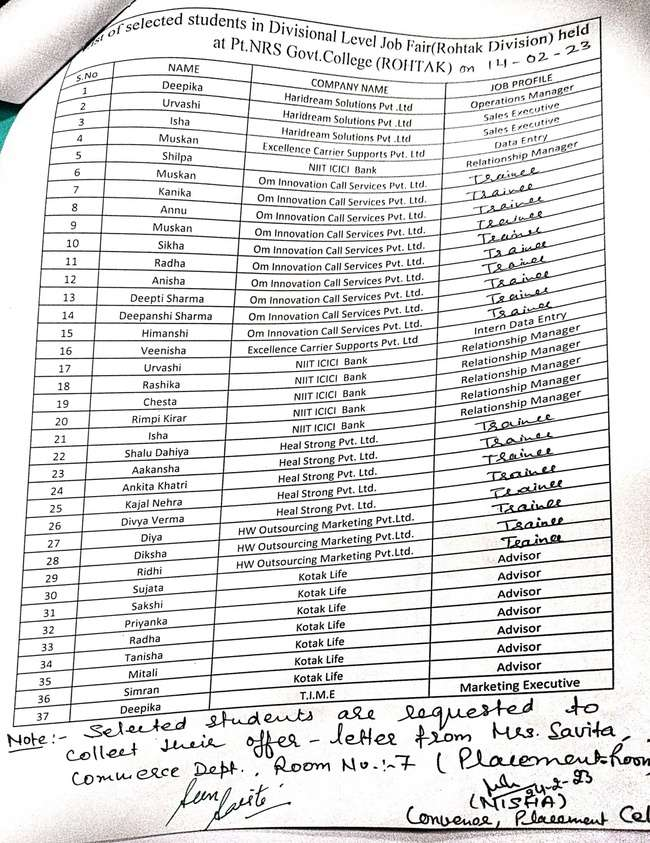 of selected students in Divisional Level Job Fair(Rohtak Division) held
at Pt.NRS Govt.College (ROHTAK) on 14-02-23
S.No NAME COMPANY NAME JOB PROFILE
1 Deepika Haridream Solutions Pvt .Ltd Operations Manager
2 Urvashi Haridream Solutions Pvt .Ltd Sales Executive
3 Isha Haridream Solutions Pvt .Ltd Sales Executive
4 Muskan Excellence Carrier Supports Pvt. Ltd Data Entry
5 Shilpa NIIT ICICI Bank Relationship Manager
6 Muskan Om Innovation Call Services Pvt. Ltd. Trainee
7 Kanika Om Innovation Call Services Pvt. Ltd. Trainee
8 Annu Om Innovation Call Services Pvt. Ltd. Trainee
9 Muskan Om Innovation Call Services Pvt. Ltd. Trainee
10 Sikha Om Innovation Call Services Pvt. Ltd. Trainee
11 Radha Om Innovation Call Services Pvt. Ltd. Trainee
12 Anisha Om Innovation Call Services Pvt. Ltd. Trainee
13 Deepti Sharma Om Innovation Call Services Pvt. Ltd. Trainee
14 Deepanshi Sharma Om Innovation Call Services Pvt. Ltd. Trainee
15 Himanshi Om Innovation Call Services Pvt. Ltd. Trainee
16 Veenisha Excellence Carrier Supports Pvt. Ltd Intern Data Entry
17 Urvashi NIIT ICICI Bank Relationship Manager
18 Rashika NIIT ICICI Bank Relationship Manager
19 Chesta NIIT ICICI Bank Relationship Manager
20 Rimpi Kirar NIIT ICICI Bank Relationship Manager
21 Isha NIIT ICICI Bank Relationship Manager
22 Shalu Dahiya Heal Strong Pvt. Ltd. Trainee
23 Aakansha Heal Strong Pvt. Ltd. Trainee
24 Ankita Khatri Heal Strong Pvt. Ltd. Trainee
25 Kajal Nehra Heal Strong Pvt. Ltd. Trainee
26 Divya Verma Heal Strong Pvt. Ltd. Trainee
27 Diya HW Outsourcing Marketing Pvt.Ltd. Trainee
28 Diksha HW Outsourcing Marketing Pvt.Ltd. Trainee
29 Ridhi HW Outsourcing Marketing Pvt.Ltd. Trainee
30 Sujata Kotak Life Advisor
31 Sakshi Kotak Life Advisor
32 Priyanka Kotak Life Advisor
33 Radha Kotak Life Advisor
34 Tanisha Kotak Life Advisor
35 Mitali Kotak Life Advisor
36 Simran Kotak Life Advisor
37 Deepika T.I.M.E Marketing Executive
Note:- Selected students are requested to
collect their offer-letter from Mrs. Savita,
Commerce Dept., Room No.:-7 (Placement-Room
24-2-23
(NISHA)
Convener, Placement Cel